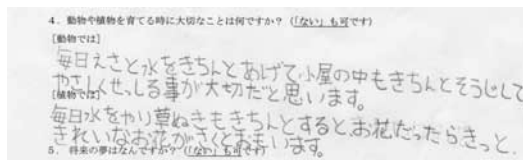 4. 動物や植物を育てる時に大切なことは何ですか?(「ない」も可です)
[動物では]
毎日えさと水をきちんとあげて、小屋の中もきちんとそうじして
やさしくせっしる事が大切だと思います。
[植物では]
毎日水をやり草ぬきもきちんとするとお花だったらきっと、
きれいなお花がさくとおもいます。
5. 将来の夢はなんですか?(「ない」も可です)